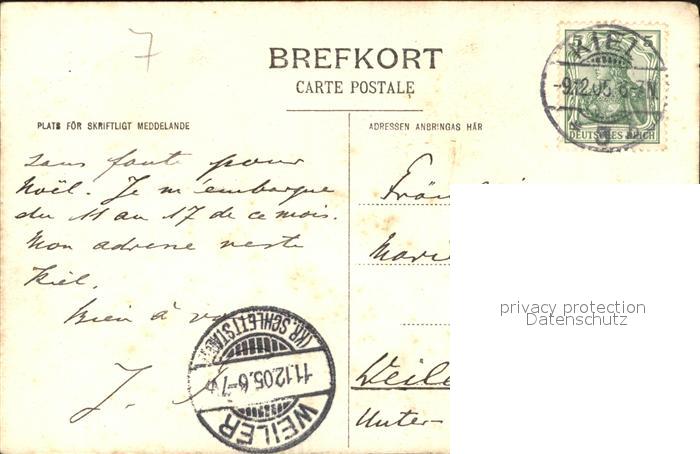 7
BREFKORT
CARTE POSTALE
PLATS FÖR SKRIFTLIGT MEDDELANDE
ADRESSEN ANBRINGAS HÄR
5 5
DEUTSCHES REICH
KIEL
-9.12.05. 6-7N.
sans faute pour
Noël. Je m'embarque
du 11 au 17 de ce mois.
Mon adresse reste
Kiel.
Bien à
J.
Weil
Unter-
(KR. SCHLETTSTADT)
11.12.05. 6-7
WEILER
privacy protection
Datenschutz